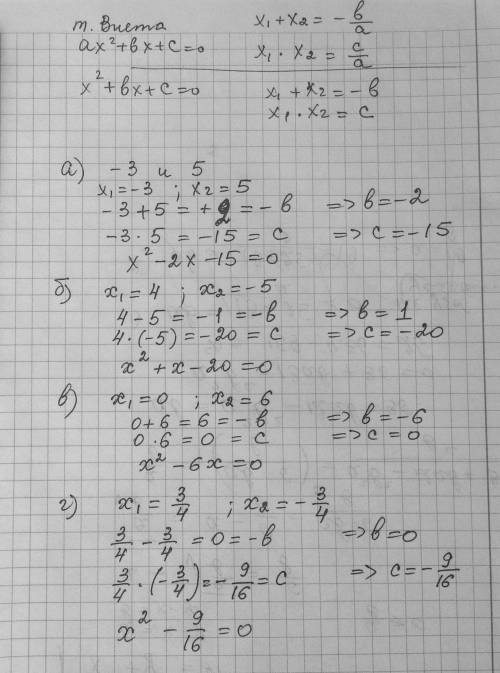 т. Виета x₁+x₂ = -b/a
ax²+bx+c=0 x₁ · x₂ = c/a
x²+bx+c=0 x₁ + x₂ = -b
x₁ · x₂ = c
а) -3 и 5
x₁=-3 ; x₂=5
-3+5 = +2 = -b => b=-2
-3·5 = -15 = c => c=-15
x²-2x-15=0
б) x₁=4 ; x₂=-5
4-5 = -1 = -b => b=1
4·(-5) = -20 = c => c=-20
x²+x-20=0
в) x₁=0 ; x₂=6
0+6=6=-b => b=-6
0·6=0 = c => c=0
x²-6x=0
г) x₁ = 3/4 ; x₂=-3/4
3/4 - 3/4 = 0 = -b => b=0
3/4·(-3/4)=-9/16=c => c=-9/16
x² - 9/16 = 0